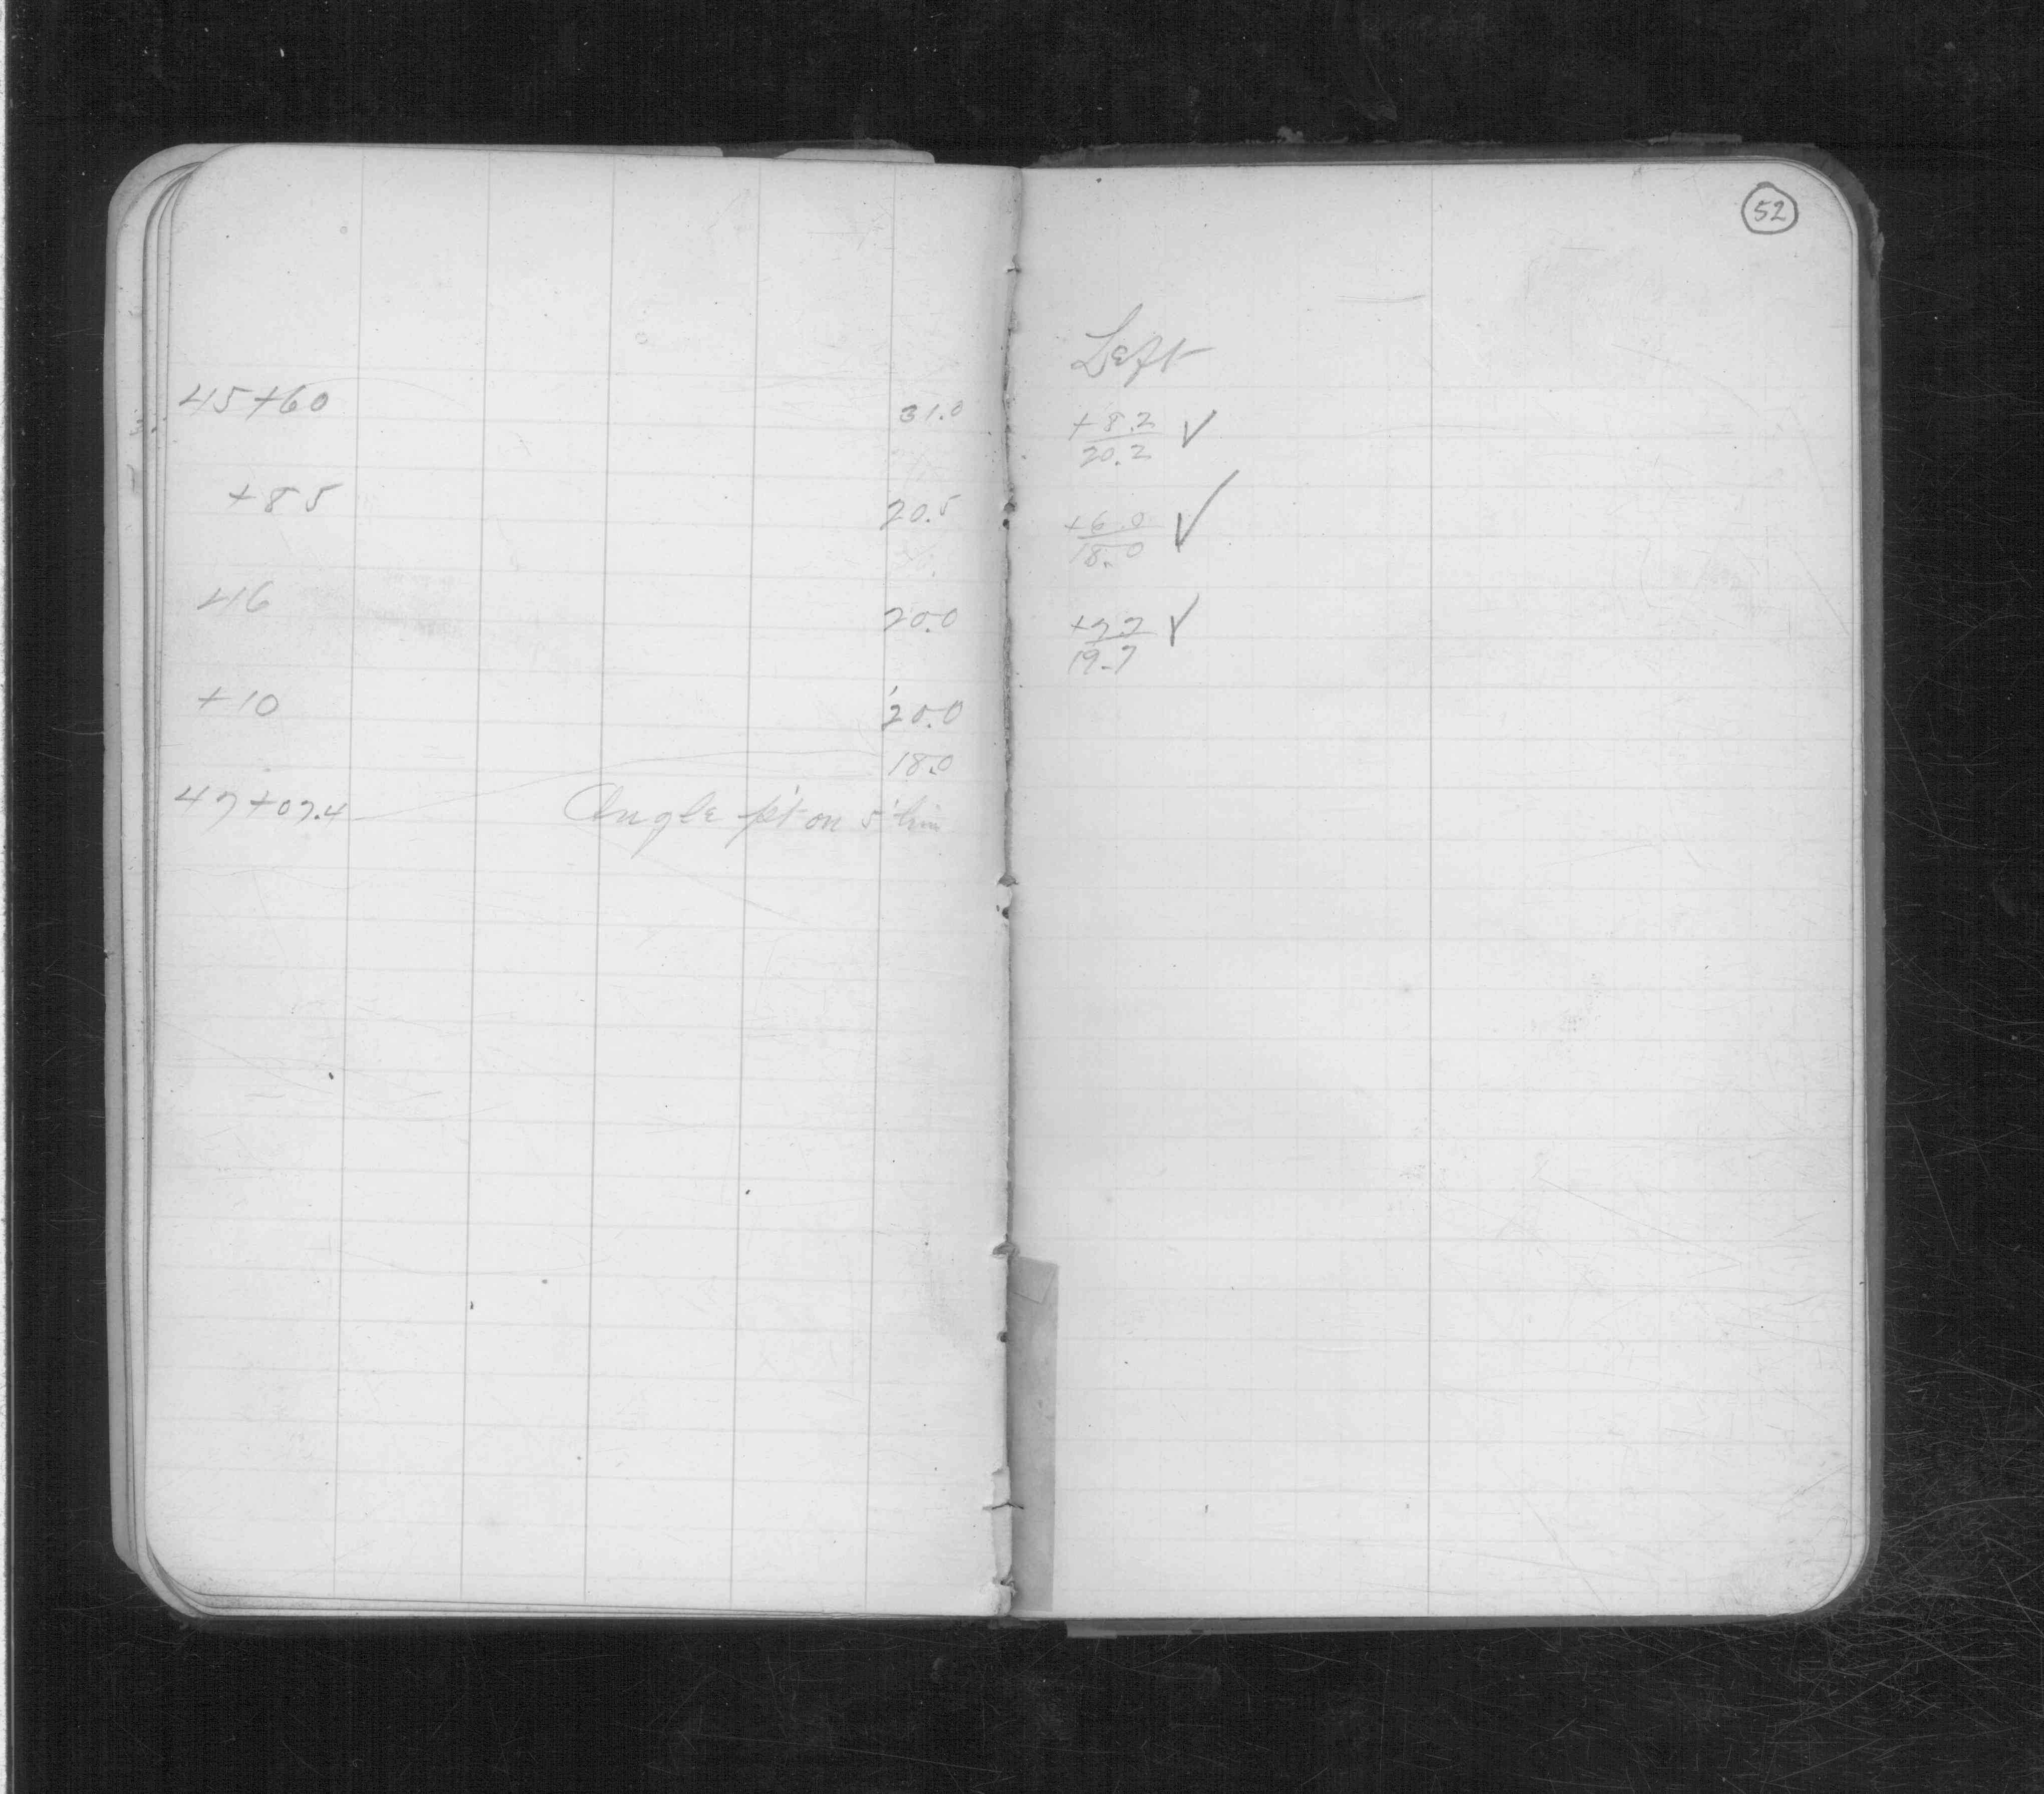 52
Left
45+60 31.0 +8.2 ✓
20.2
+85 20.5 +6.0 ✓
18.0
46 20.0 +7.7 ✓
19.7
+10 20.0
18.0
47+07.4 Angle pt on 5'